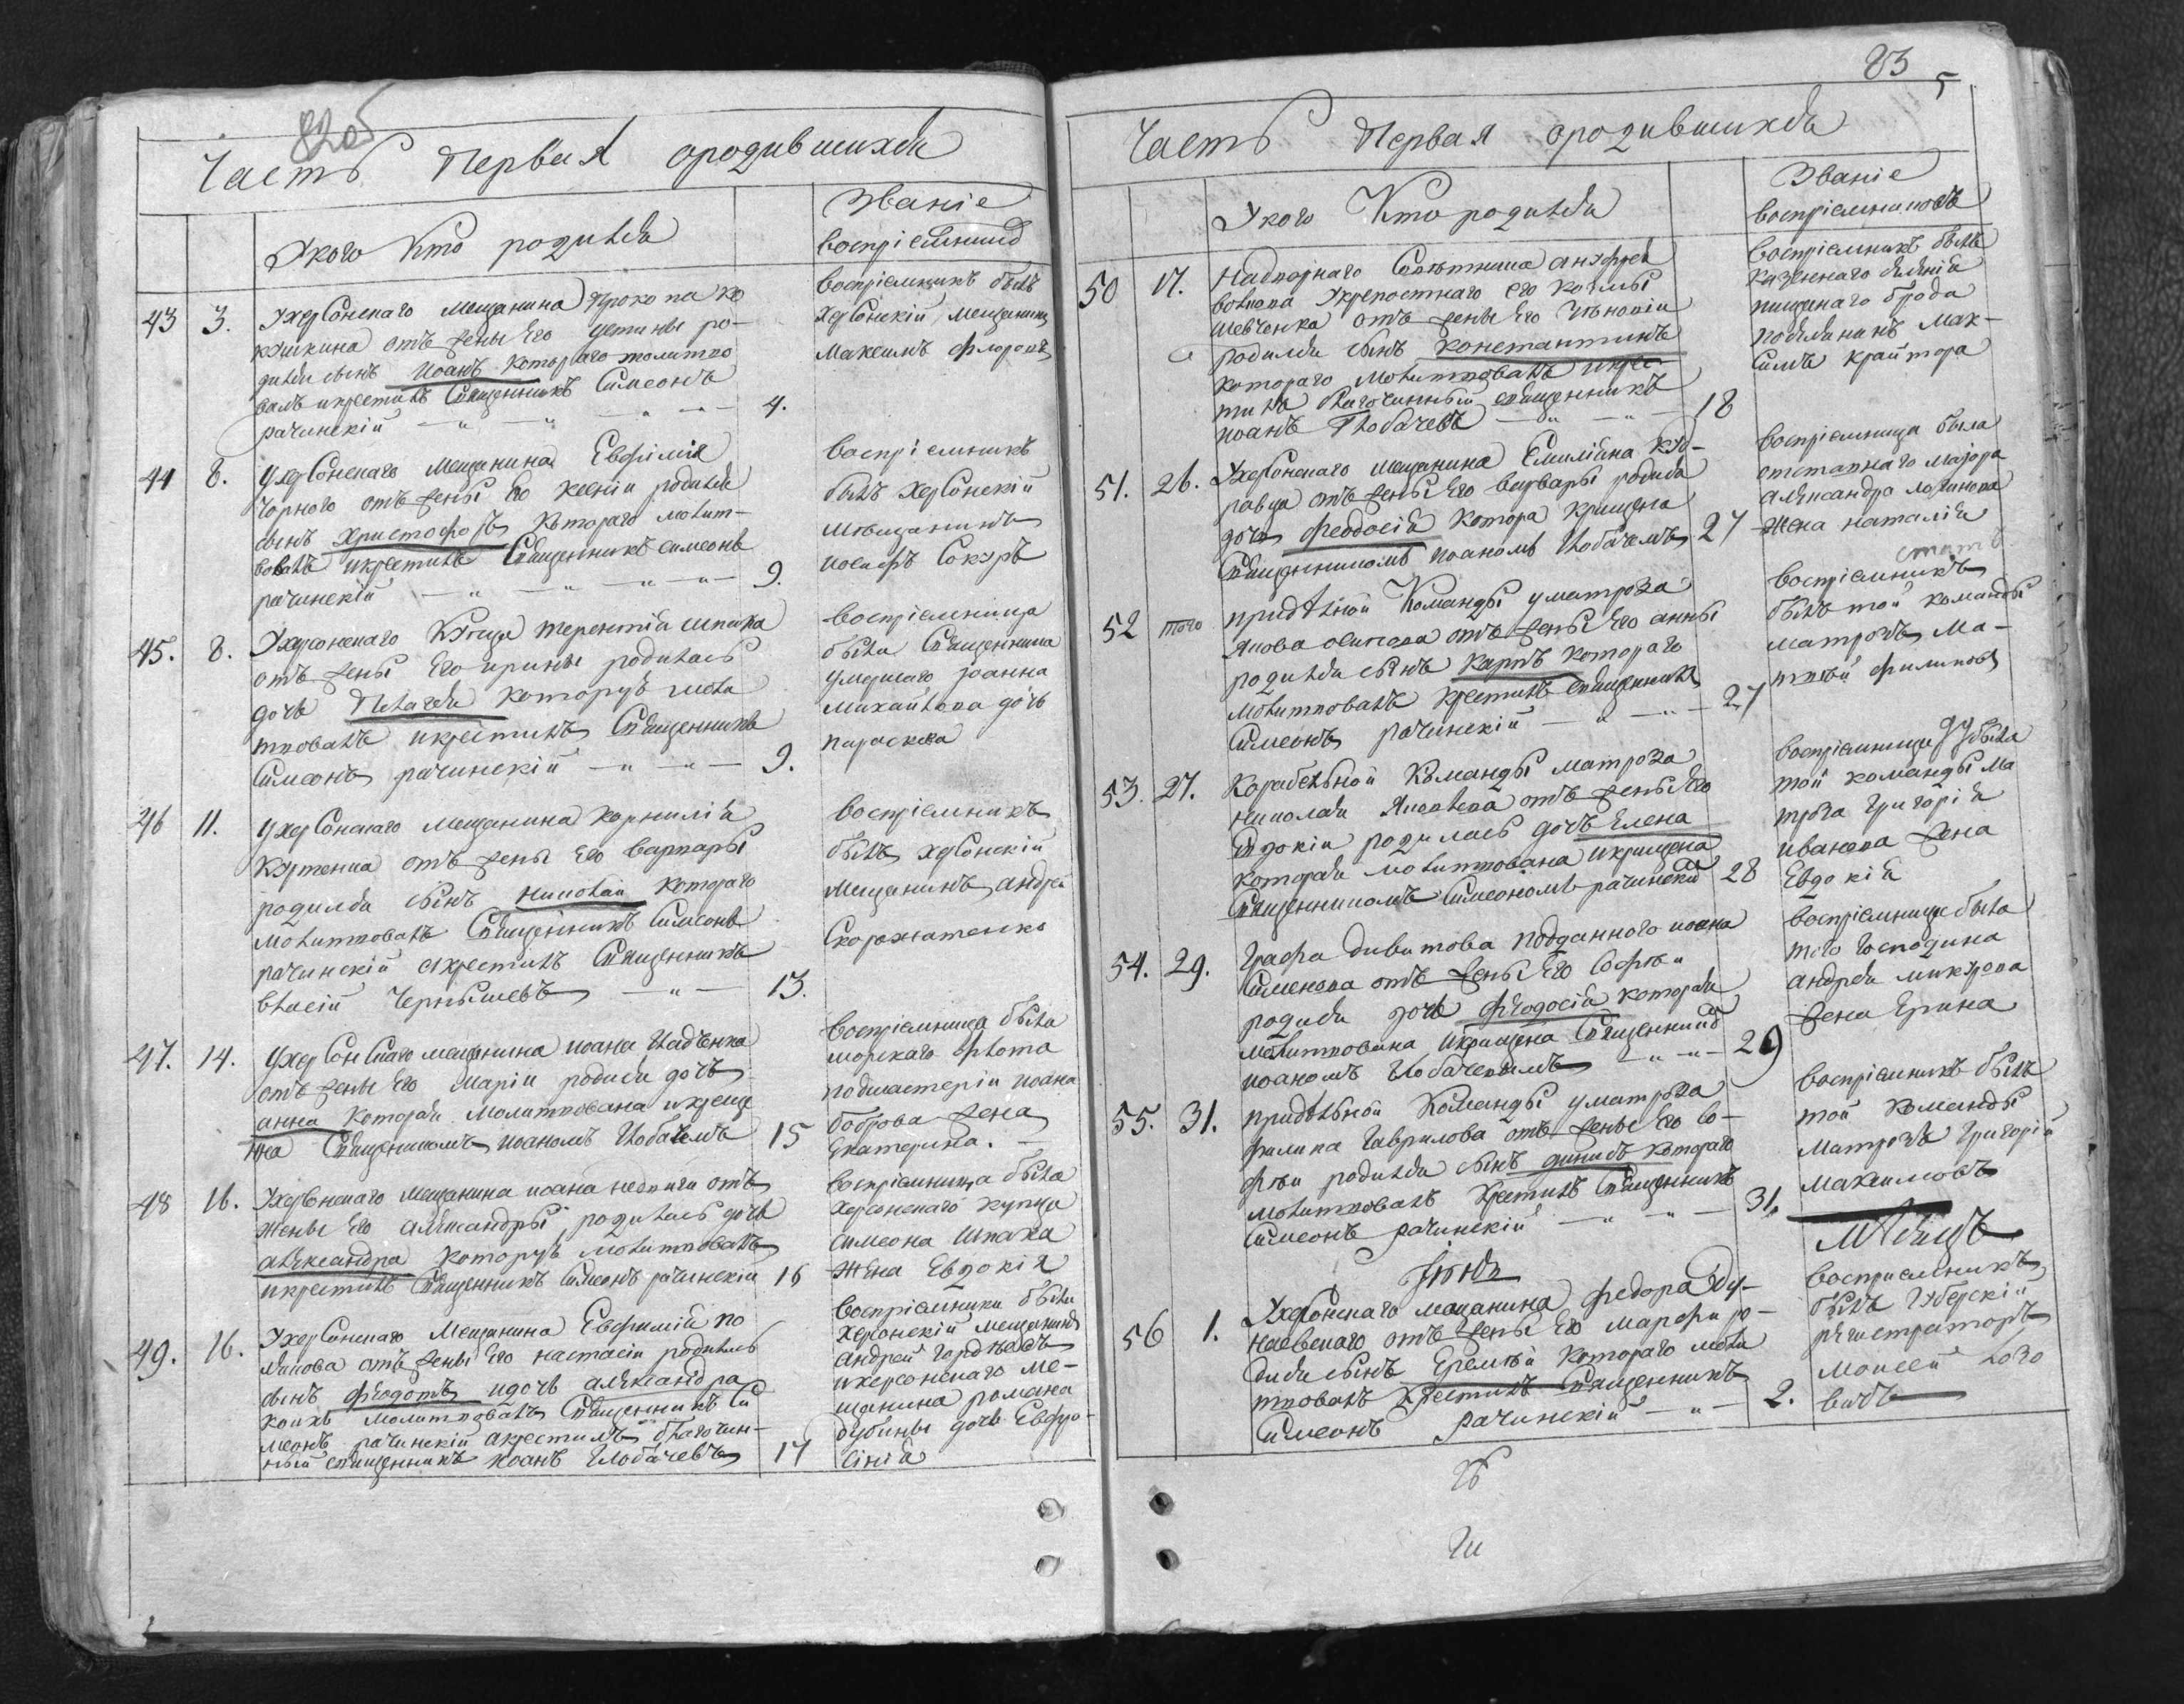 82об
Часть Первая ородившихся
Укого Кто родился
Званіе
воспріемник
43 3. Ухерсонскаго мещанина Прокопа Ко
кушкина отъ жены Его устины ро-
дился сынъ Иоанъ Котораго молитво
валъ икрестилъ Священникъ Симеонъ
рачинскій 4.
воспріемникъ былъ
Херсонскій мещанинъ
Максимъ Флоровъ
44 8. Ухерсонскаго мещанина Евфимія
Чорного отъ жены Его Ксеніи родился
сынъ Христофоръ Котораго молит-
вовалъ икрестилъ Священникъ симеонъ
рачинскій 9.
воспріемникъ
былъ Херсонскій
мещанинъ
иосифъ Сокуръ
45. 8. Ухерсонскаго Купца терентія шпака
отъ жены Его ирины родилась
дочь Пелагея Которую моли
твовалъ икрестилъ Священникъ
Симеонъ рачинскій 9.
воспріемница
была Священника
умершаго иоанна
Михайлова дочь
параскева
46 11. Ухерсонскаго мещанина Корнилія
отъ жены Его варвары
родился сынъ николай Котораго
молитвовалъ Священникъ Симеонъ
рачинскій акрестилъ Священникъ
власій Чернышевъ 13.
воспріемникъ
былъ Херсонскій
мещанинъ андрей
47. 14. Ухерсонскаго мещанина иоана
отъ жены Его Маріи родися дочь
анна Котора́я Молитвована икреще
на Священникомъ иоаномъ 15
воспріемница была
морскаго флота
подмастерія иоана
боброва жена
Екатерина.
48 16. Ухерсонскаго мещанина иоана отъ
жены Его александры родилась дочь
александра Которую молитвовалъ
икрестилъ Священникъ Симеонъ рачинскій 16
воспріемница была
херсонскаго купца
симеона Шпака
жена Евдокія
49. 16. Ухерсонскаго Мещанина Евфимія по
лякова отъ жены Его настасіи родились
сынъ Феодотъ идочь александра
коихъ молитвовалъ Священникъ Си
меонъ рачинскій акрестилъ благочин-
ный священникъ иоанъ 17
воспріемники были
херсонскій мещанинъ
андрей
ихерсонскаго ме-
щанина романа
дубины дочь Евфро-
сінія
83
5
Часть Первая ородившихся
Укого Кто родился
Званіе
воспріемниковъ
50 17. Надворнаго Советника
Укрепостнаго его козмы
Шевченка отъ жены Его
родился сынъ Константинъ
котораго молитвовалъ икрес-
тилъ благочинный священникъ
иоанъ 18
воспріемникъ былъ
казеннаго
пищанаго брода
Мак-
симъ
51. 26. Ухерсонскаго мещанина Емиліяна Ку-
равца отъ жены Его варвары родися
дочь Феодосія Котора крищена
Священникомъ иоаномъ 27
воспріемница была
отставнаго маіора
александра
жена наталія
52 того придельной Команды уматроза
Якова осипова отъ жены Его анны
родился сынъ Карпъ Котораго
молитвовалъ крестилъ священникъ
Симеонъ рачинскій 27
воспріемникъ
былъ той команды
матрозъ Ма-
твей филиповъ
53. 27. Корабельной Команды матроза
николая Яковлева отъ жены Его
Евдокіи родилась дочь Елена
котора́я молитвована икрищена
Священникомъ Симеономъ рачинским 28
воспріемница была
той команды ма
троза Григорія
иванова жена
Евдокія
54. 29. Графа подданного иоана
Симонова отъ жены Его Софіи
родися дочь Феодосія котора́я
молитвована икрищена Священником
иоаномъ 29
воспріемница была
того Господина
андрея
жена Ерина
55. 31. придельной Команды уматроза
филипа Гаврилова отъ жены Его Со-
фіи родился сынъ Котораго
молитвовалъ крестилъ Священникъ
Симеонъ рачинскій 31.
воспріемникъ былъ
той Команды
Матрозъ Григорій
Максимовъ
Іюнь
Мѣсяцъ
56 1. Ухерсонскаго мещанина федора
отъ жены Его Марфи ро-
дися сынъ Еремей Котораго моли
твовалъ крестилъ священникъ
Симеонъ рачинскій 2.
воспріемникъ
былъ Губерскій
регистраторъ
Моисей